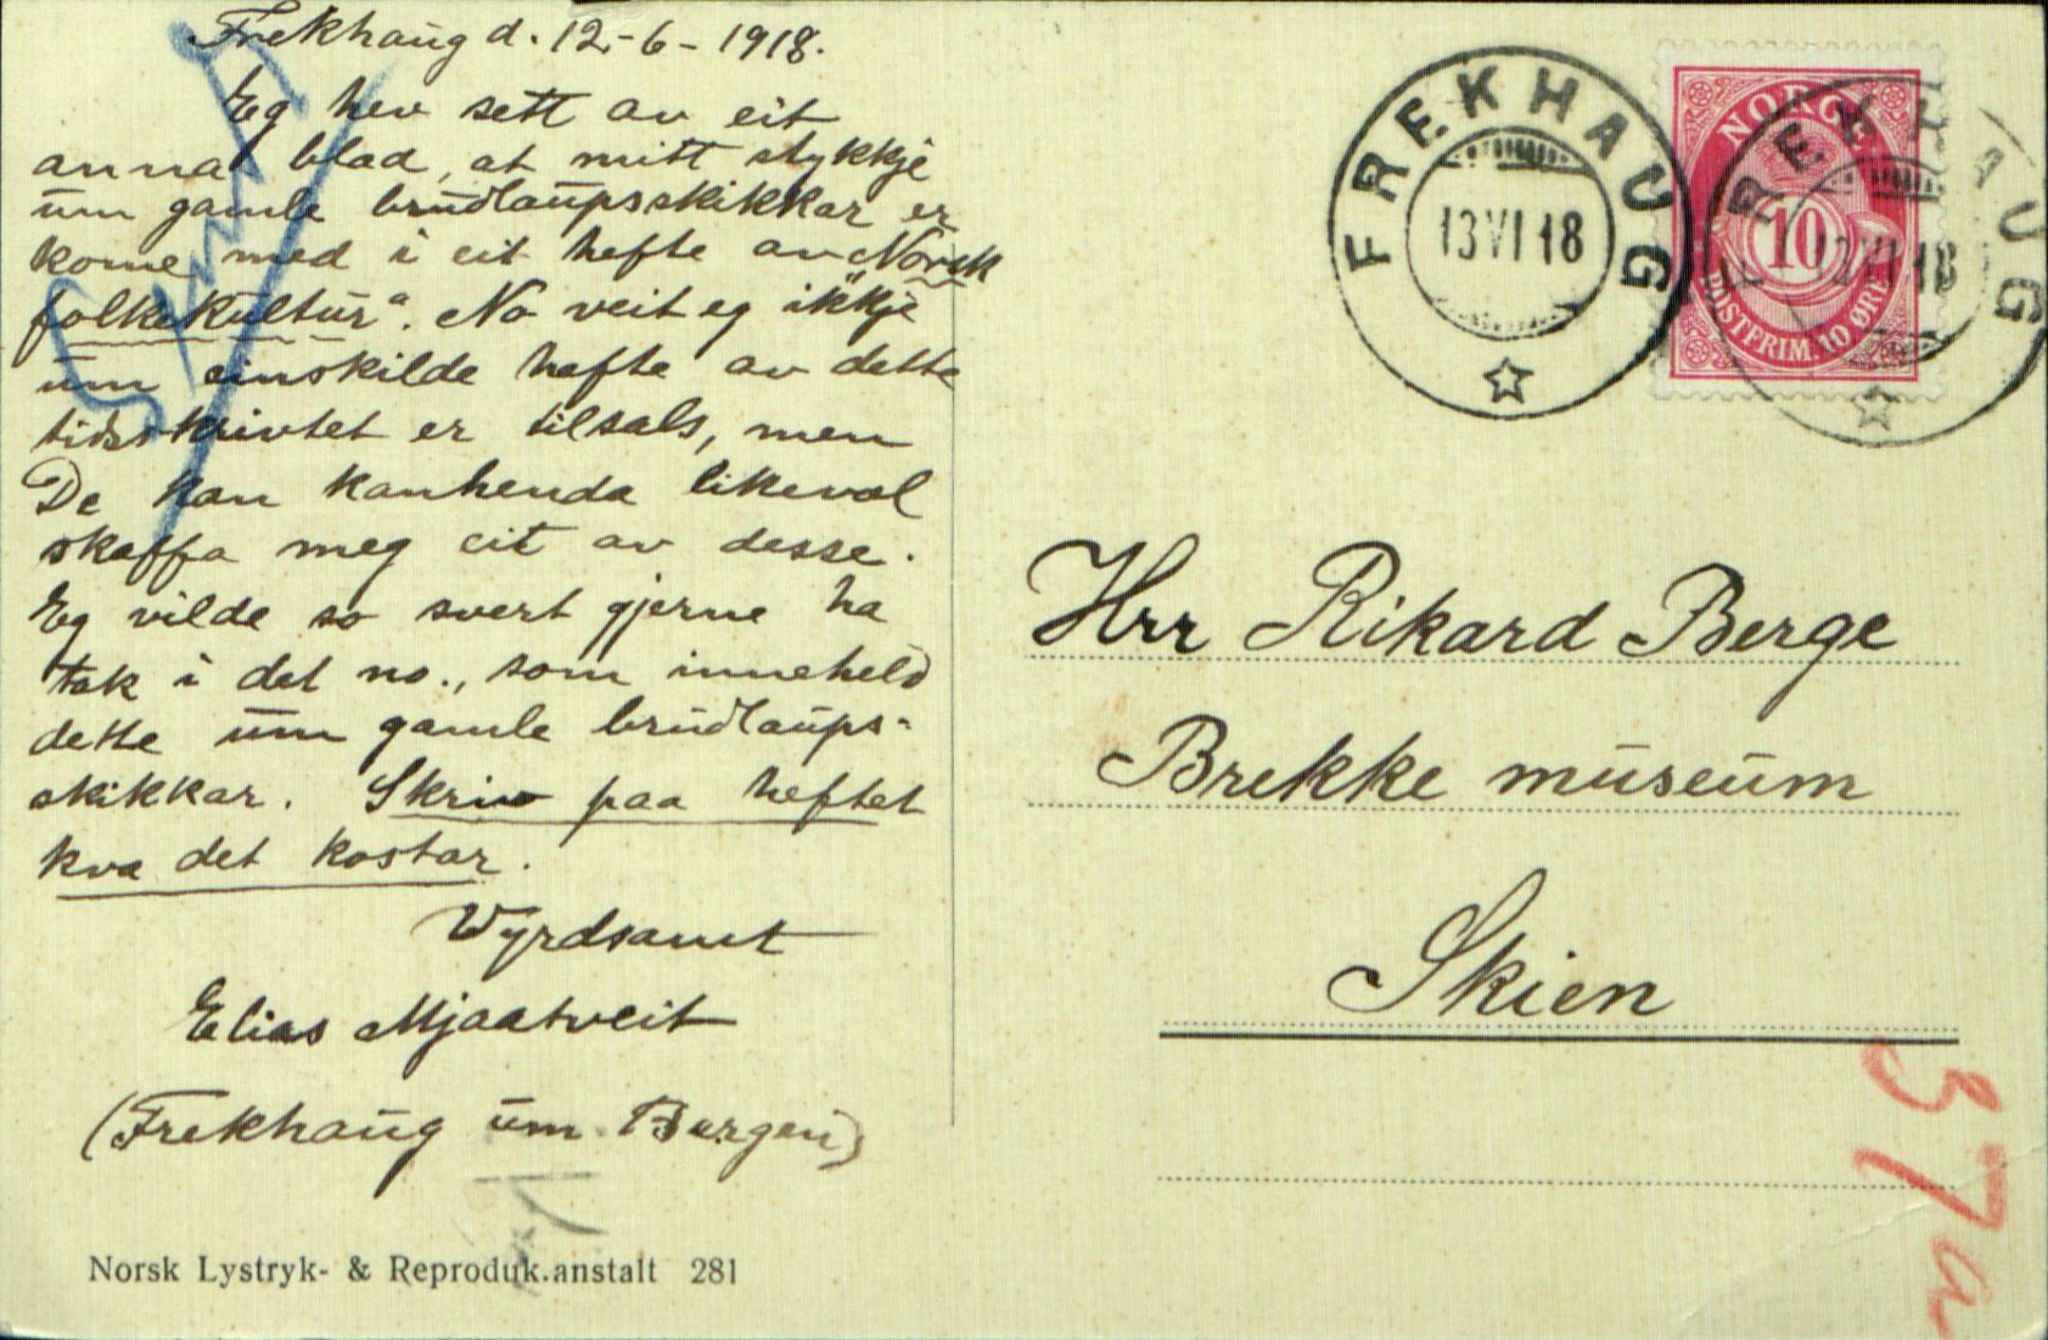 Frekhaug d. 12-6-1918.
Eg hev sett av eit
anna blad, at mitt stykkje
um gamle brudlaupsskikkar er
kome med i eit hefte av „Norsk
folkekultur". No veit eg ikkje
um einskilde hefte av dette
tidsskrivtet er tilsals, men
De kan kanhenda likevæl
skaffa meg eit av desse.
Eg vilde so svert gjerne ha
tak i det no., som inneheld
dette um gamle brudlaups-
skikkar. Skriv paa heftet
kva det kostar.
Vyrdsamt
Elias Mjaatveit
(Frekhaug um Bergen)
Norsk Lystryk- & Reproduk.anstalt 281
FREKHAUG
13 VI 18
NORGE
10
POSTFRIM. 10 ØRE
FREKHAUG
Hrr Rikard Berge
Brekke museum
Skien
37a